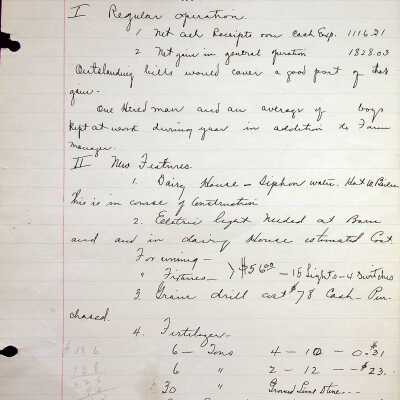 I Regular operation
1 Net cash Receipts over Cash Exp. 1116.21
2 Net gain in general operation 1828.03
Outstanding bills would cover a good part of this
gain.
One Hired man and an average of boys
Kept at work during year in addition to Farm
manager.
II New Features
1. Dairy House - Siphon water.
This is in course of Construction
2. Electric light needed at Barn
and and in dairy House estimated Cost
For wiring -
" Fixtures - } $56.00 - 15 Lights - 4 Switches
3. Grain drill cost $78 Cash - Pur-
chased.
4. Fertilizer -
6 - Tons 4 - 10 - 0. $31
6 " 2 - 12 - - $23.
30 " Ground Lime Stone - -